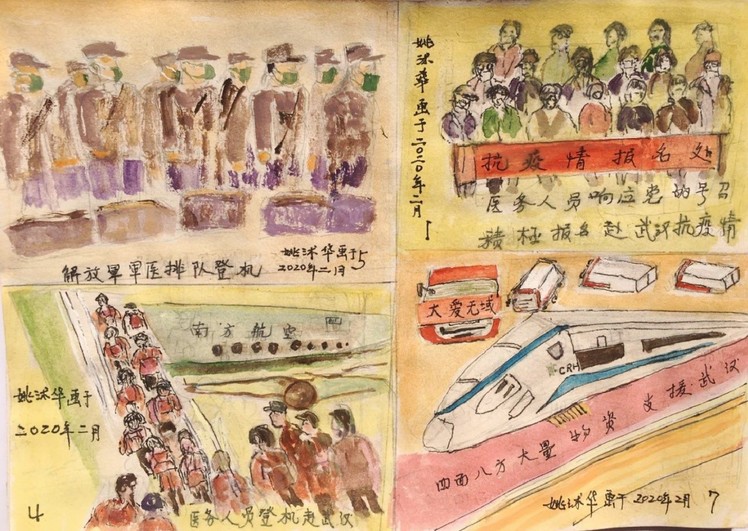 解放军军医排队登机
姚沭华画于
2020年二月
5
姚沭华画于二〇二〇年二月
1
抗疫情报名处
医务人员响应党的号召
積极报名赴武汉抗疫情
南方航空
姚沭华画于
二〇二〇年二月
4
医务人员登机赴武汉
大爱无域
CRH
四面八方大量物资支援武汉
姚沭华画于2020年2月
7